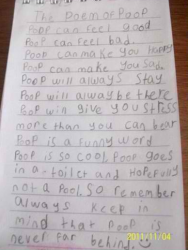 The Poem of Poop
Poop can feel good
Poop can feel bad
Poop can make you happy
Poop can make you sad
Poop will always stay
Poop will always be there
Poop will give you stress
more than you can bear
Poop is a funny word
Poop is so cool, Poop goes
in a toilet and Hopefully
not a Pool, SO remember
Always keep in
mind that Poop is
never far behind
2011-11-04